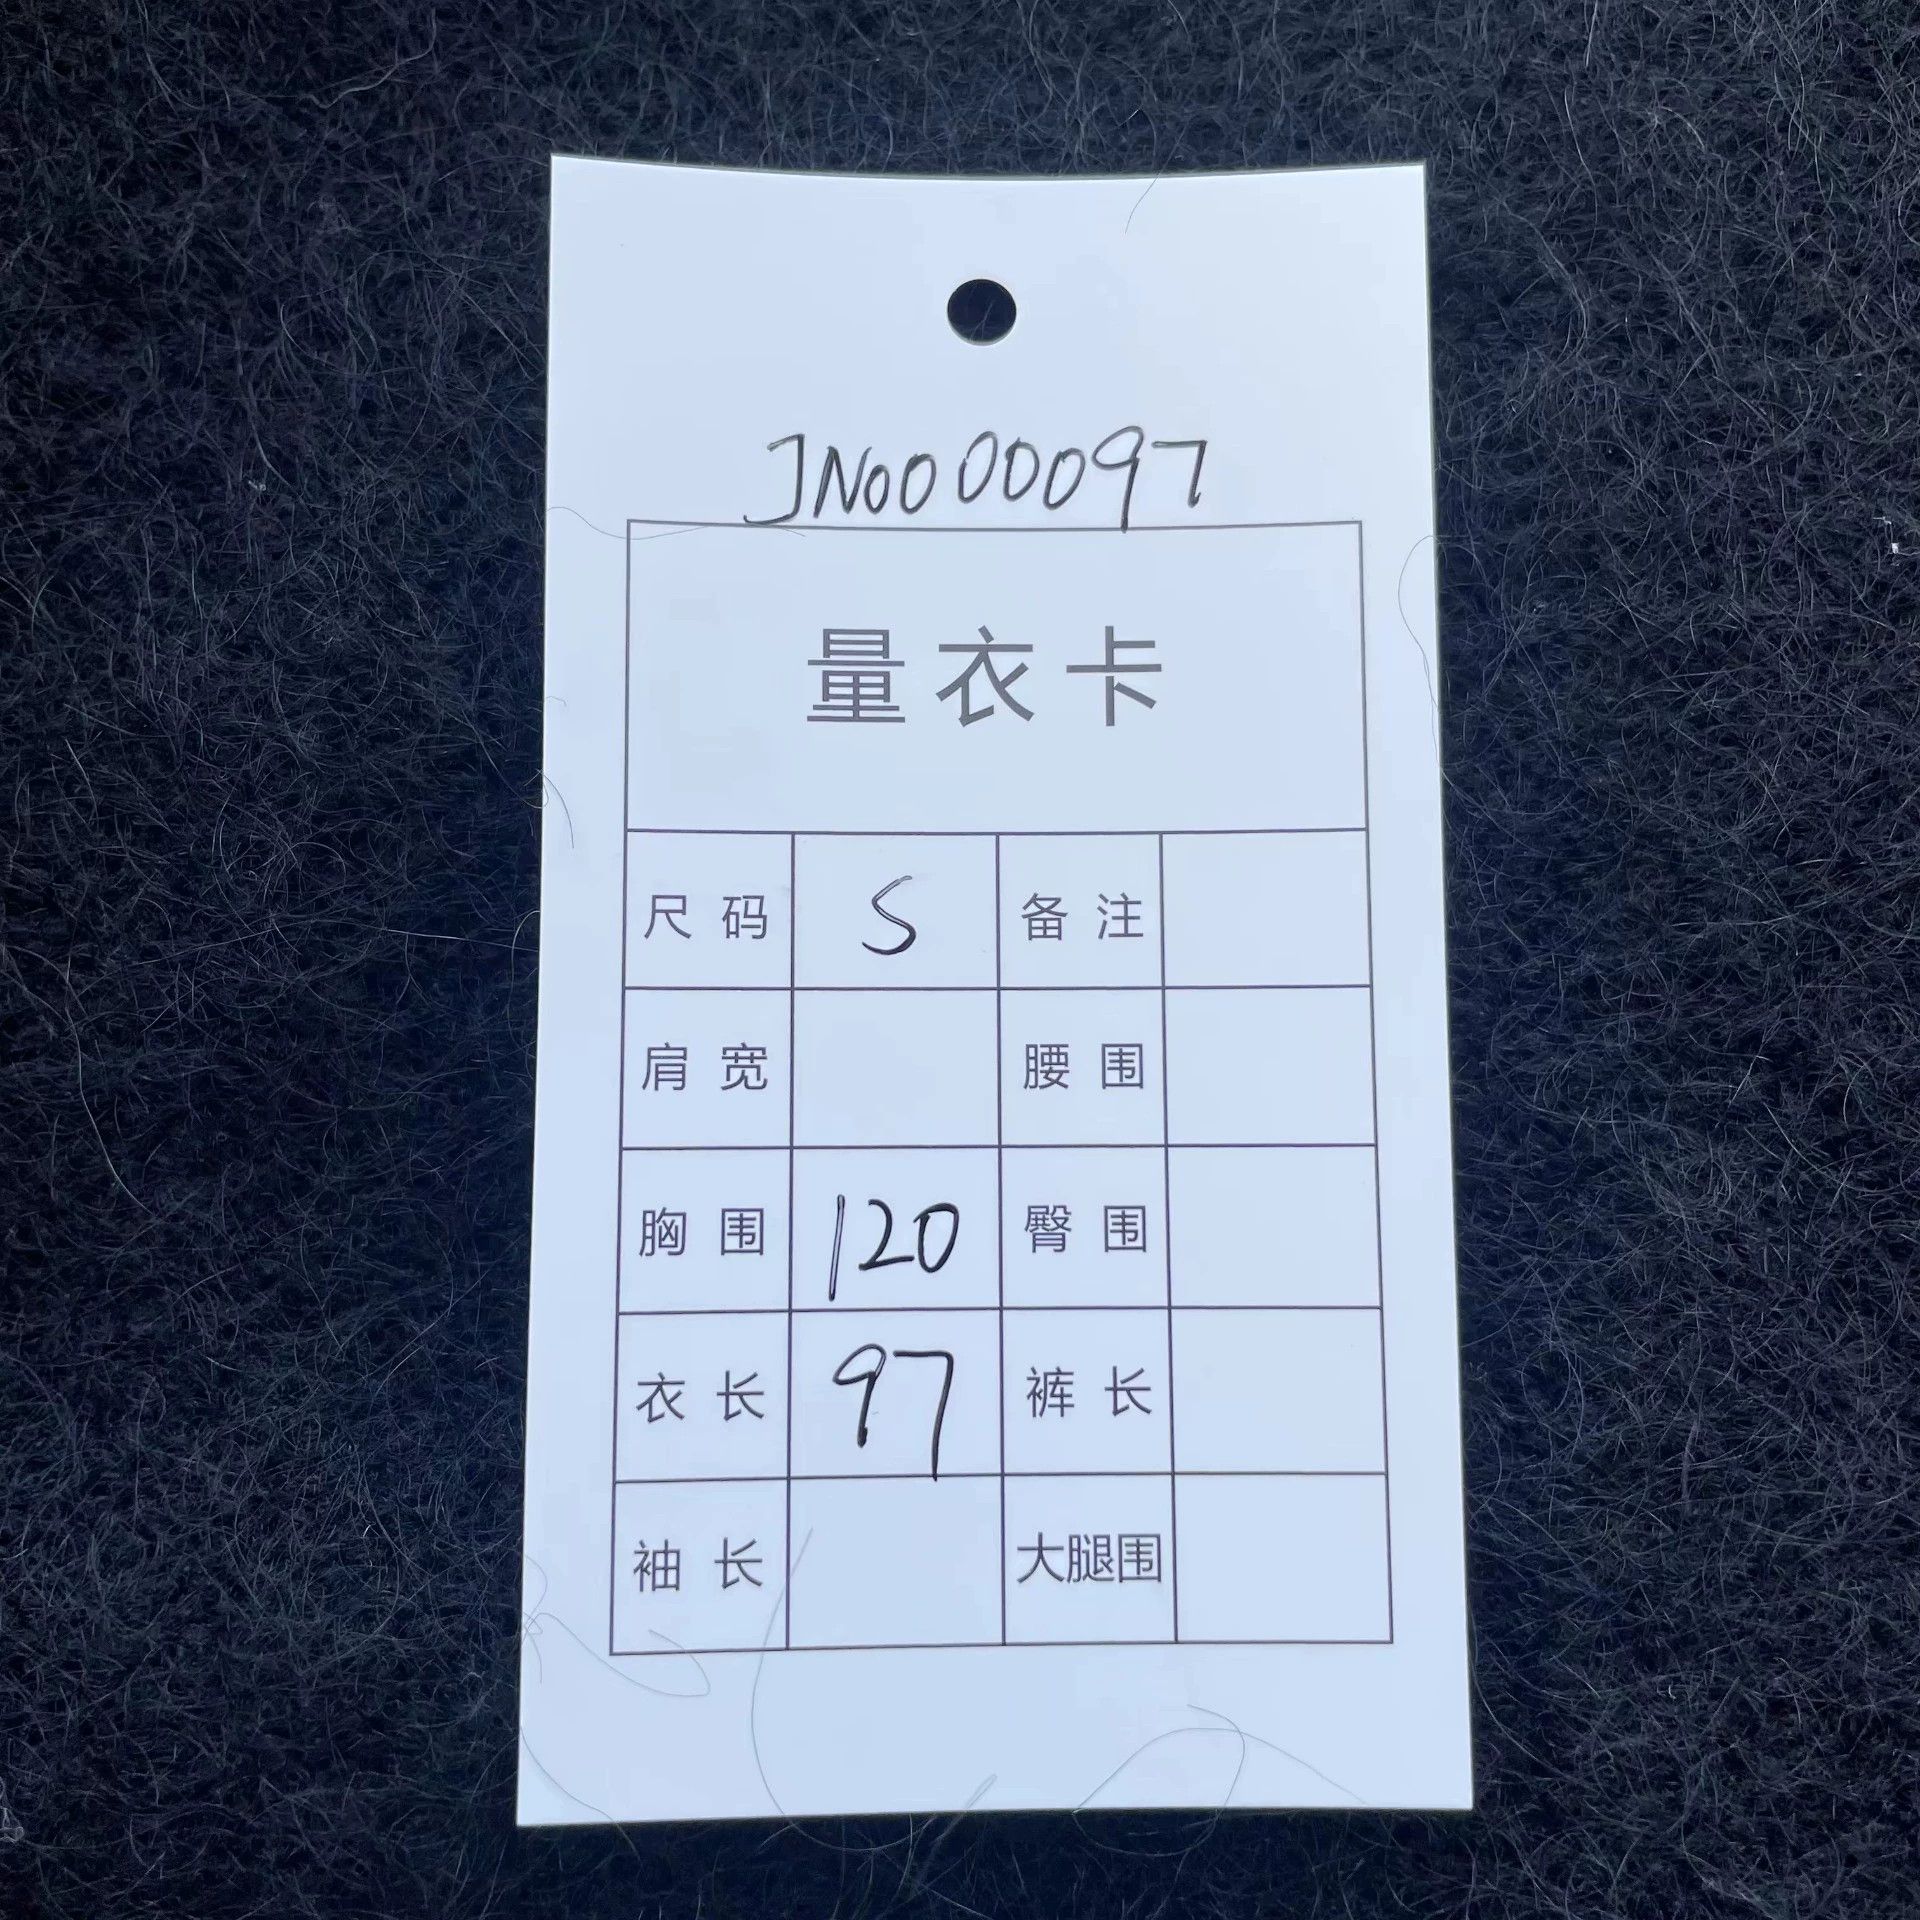 JN0000097
量衣卡
尺码 S 备注
肩宽 腰围
胸围 120 臀围
衣长 97 裤长
袖长 大腿围